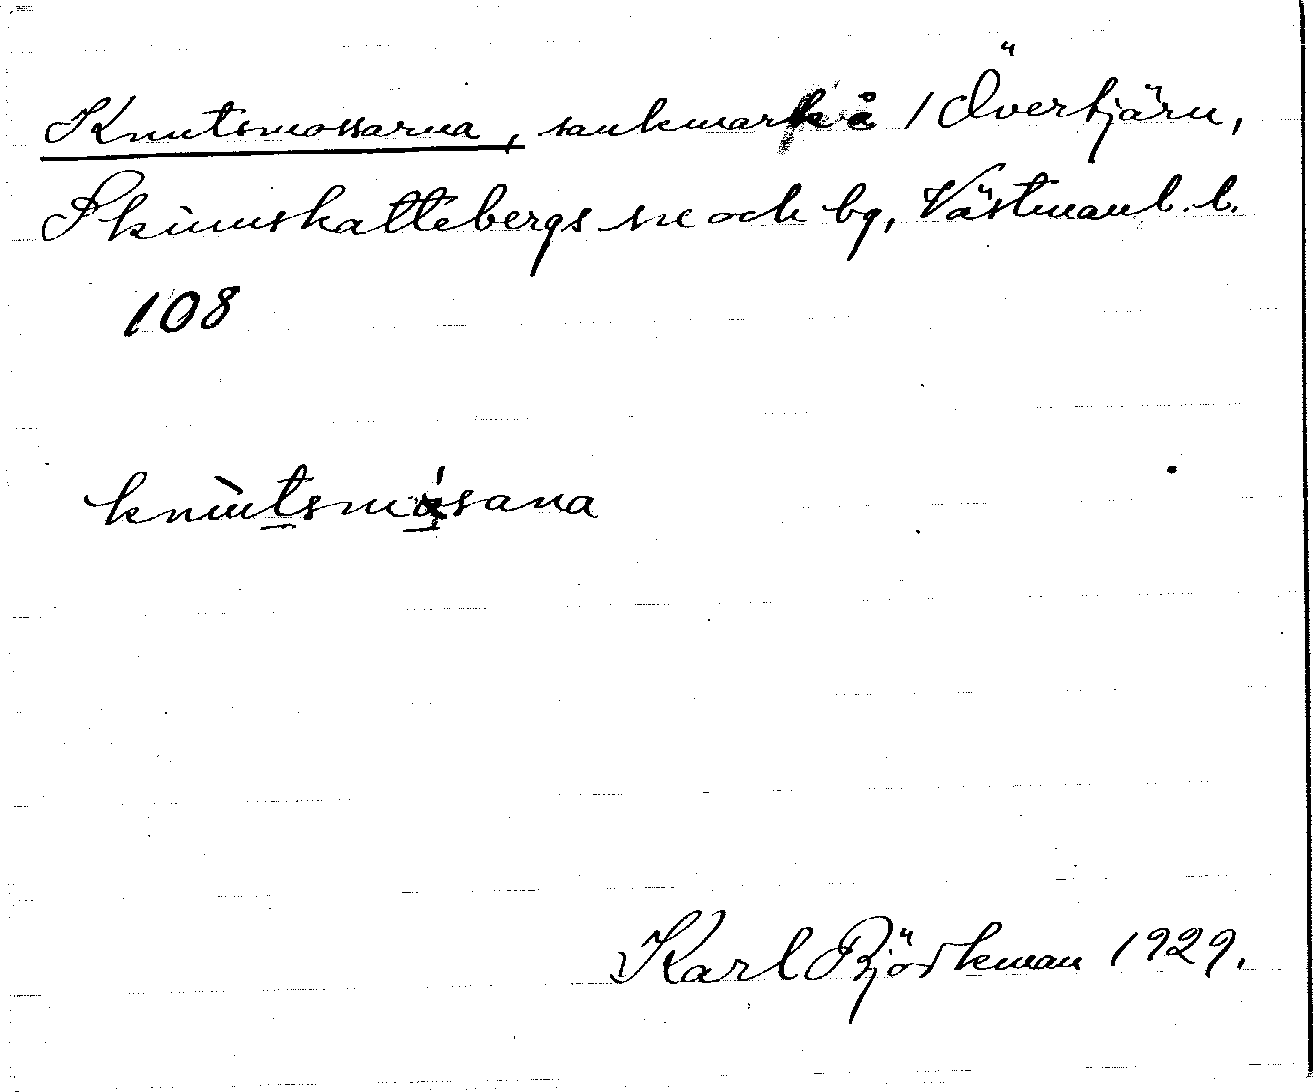 Knutsmossarna, sankmark å 1 Övertjärn,
Skinnskattebergs sn och bg, Västmanl. l.
108
knùtsmǻsana
Karl Björkman 1929.